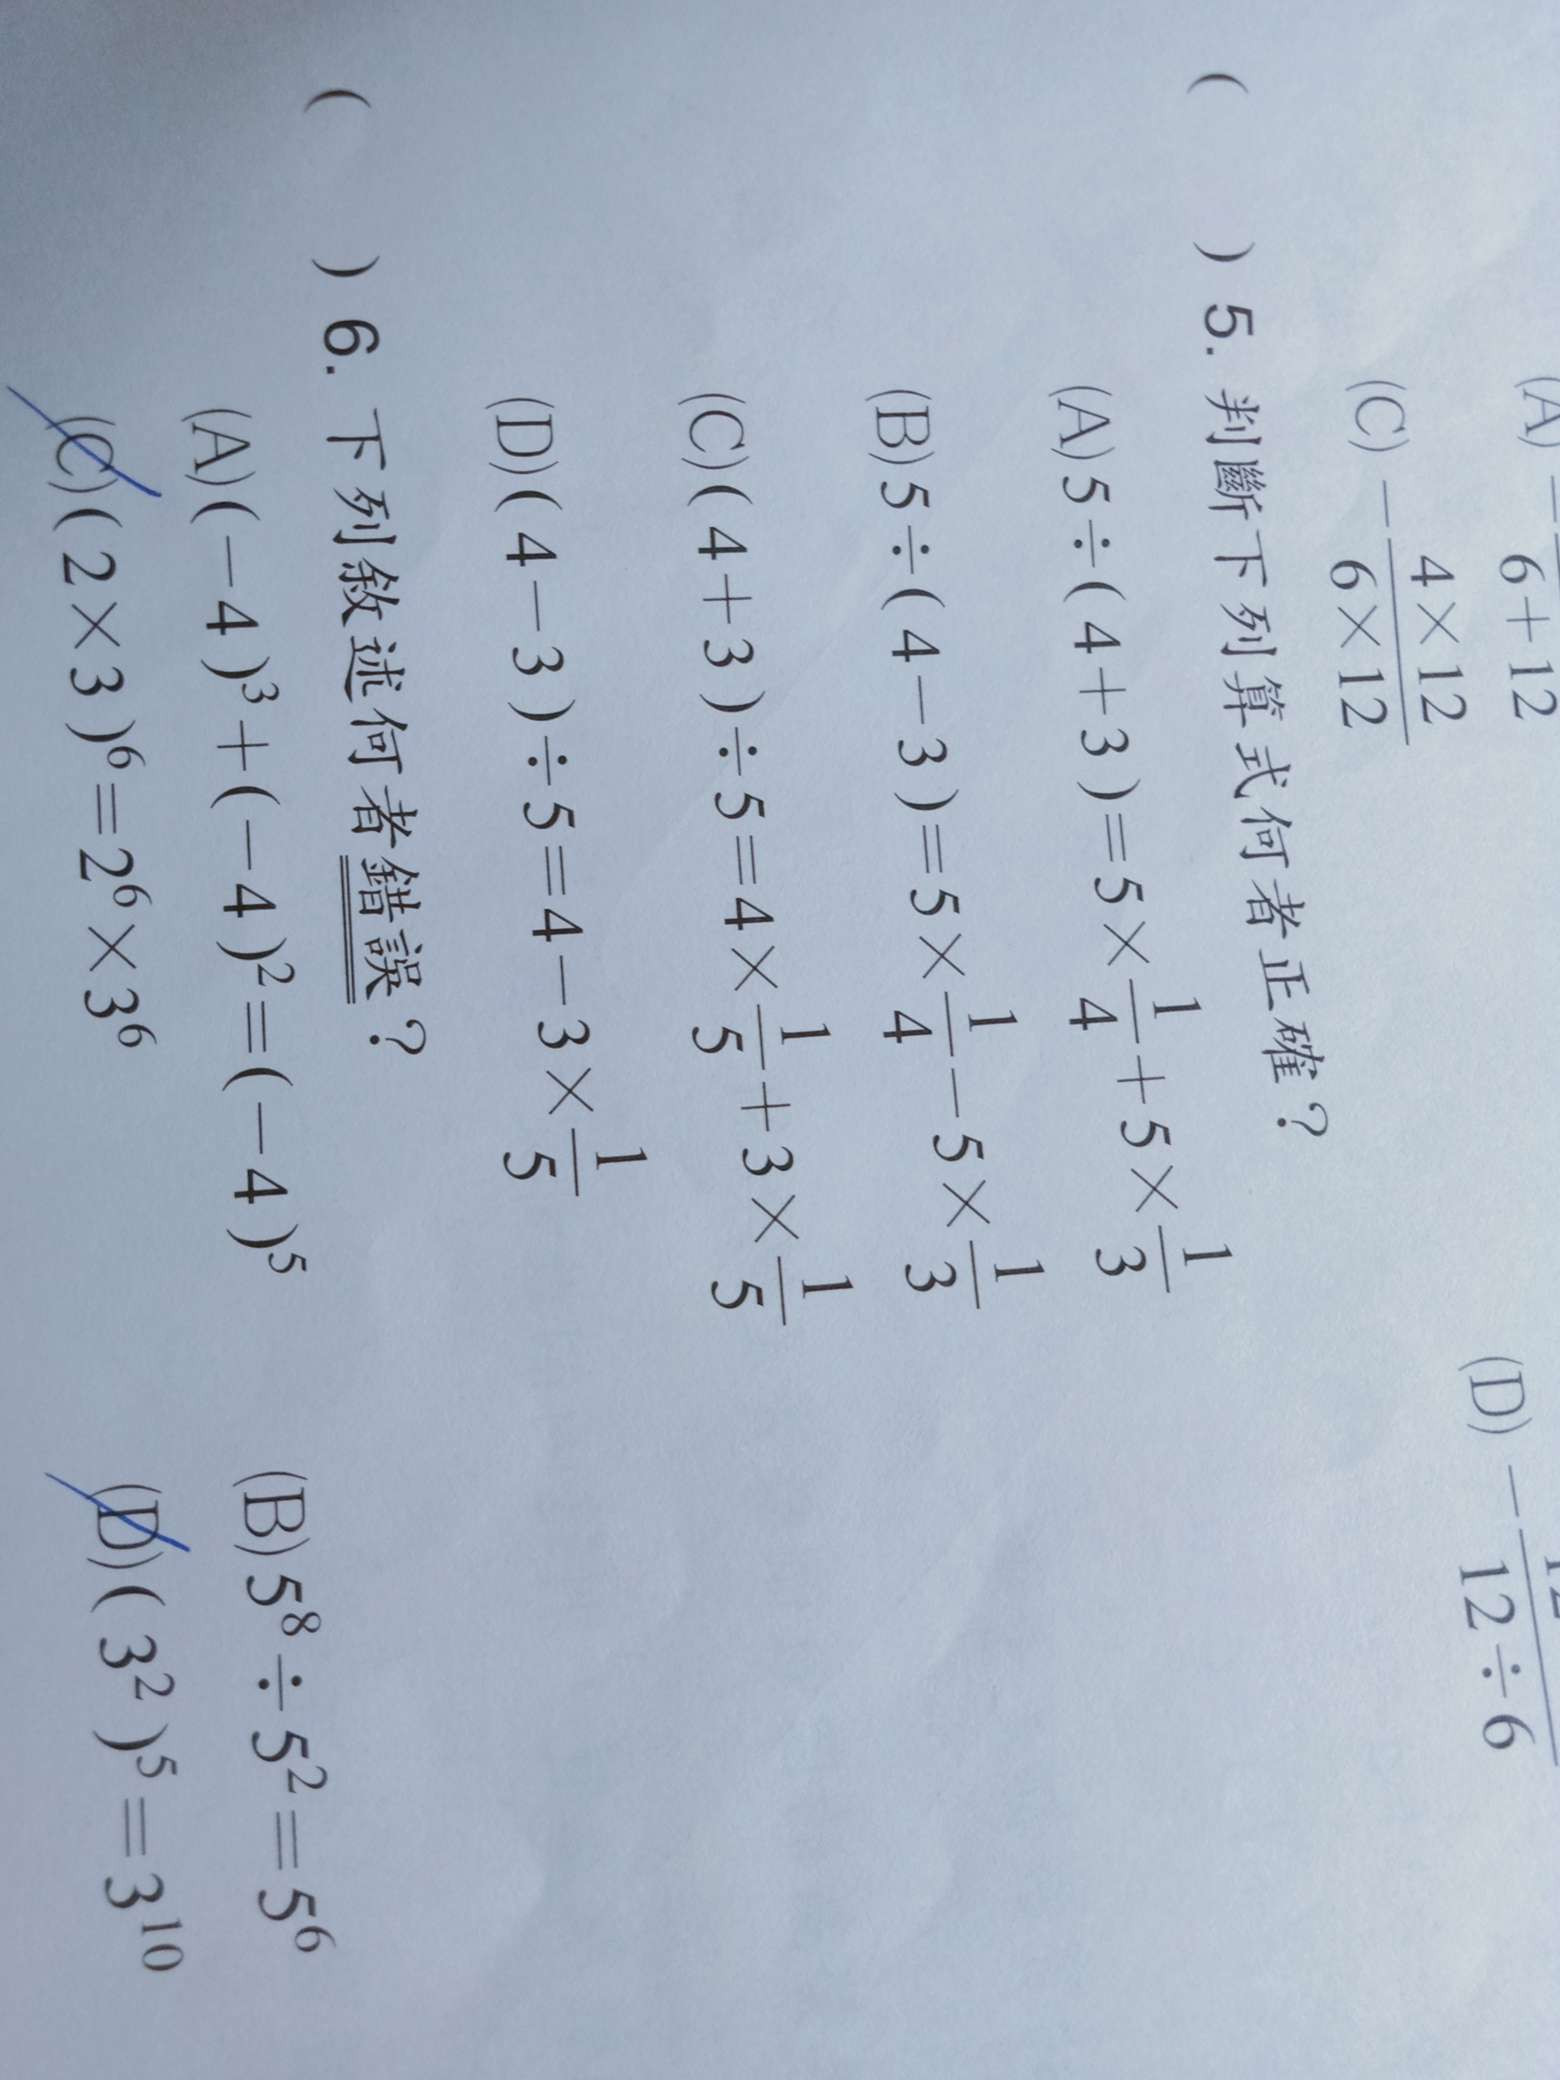 (A) −
6+12
(C) − 4×12/6×12
(D) − 12÷6
( ) 5. 判斷下列算式何者正確？
(A) 5÷(4+3)=5×1/4+5×1/3
(B) 5÷(4−3)=5×1/4−5×1/3
(C) (4+3)÷5=4×1/5+3×1/5
(D) (4−3)÷5=4−3×1/5
( ) 6. 下列敘述何者錯誤？
(A) (−4)³+(−4)²=(−4)⁵ (B) 5⁸÷5²=5⁶
(C) (2×3)⁶=2⁶×3⁶ (D) (3²)⁵=3¹⁰